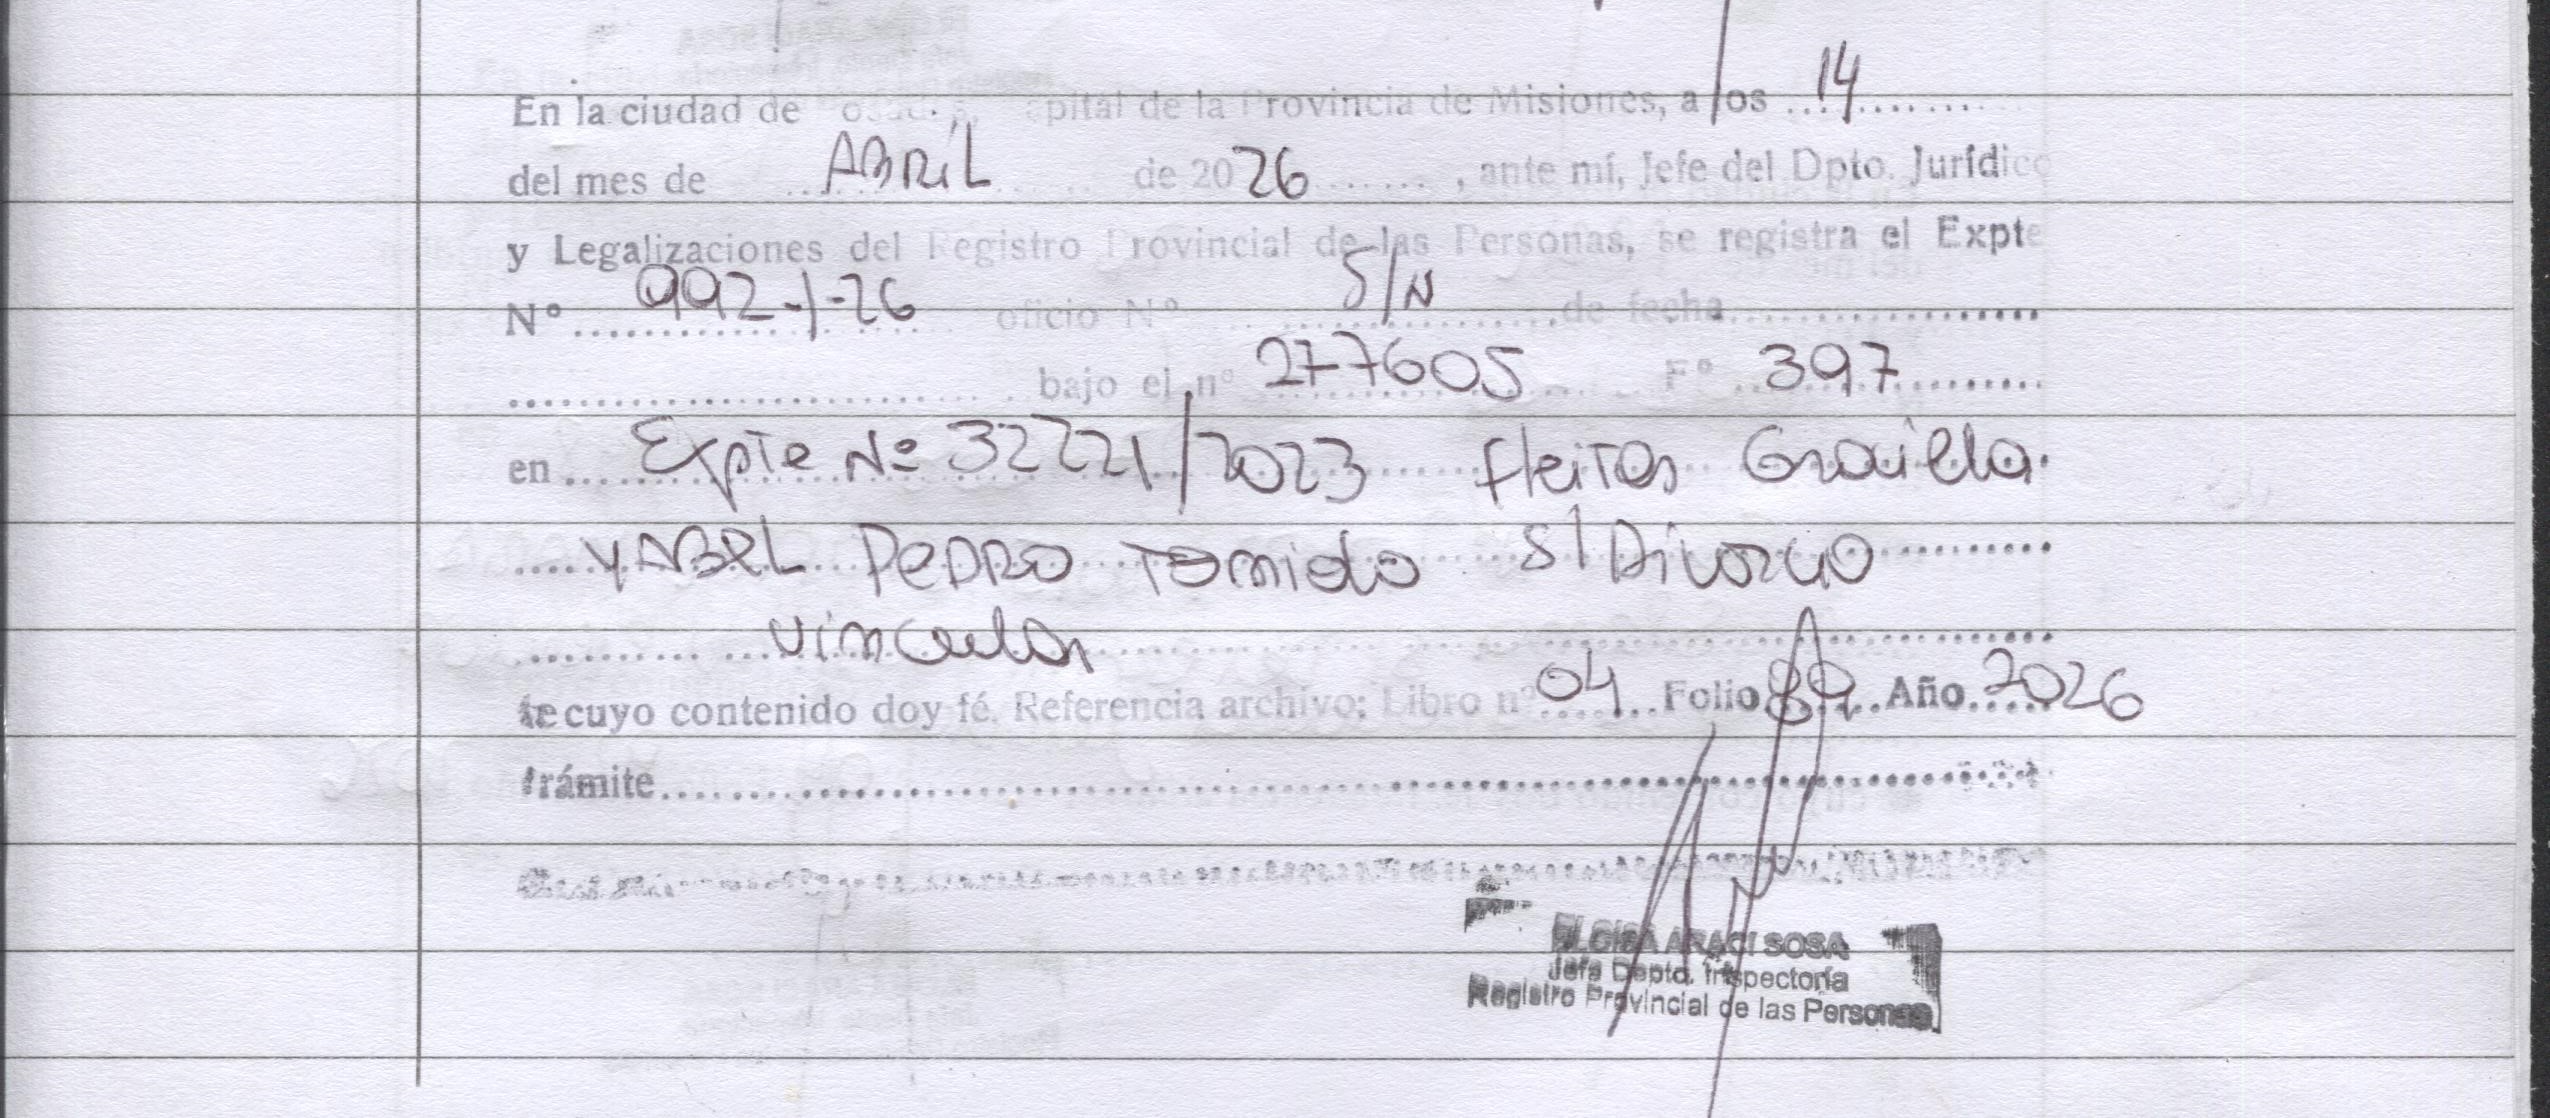 En la ciudad de Posadas, Capital de la Provincia de Misiones, a los 14
del mes de ABRIL de 2026, ante mí, Jefe del Dpto. Jurídico
y Legalizaciones del Registro Provincial de las Personas, se registra el Expte
Nº 992-J-26 oficio Nº S/N de fecha
bajo el nº 277605 Fº 397
en Expte Nº 32221/2023 Fleitas Graciela
Y ABEL PEDRO S/ Divorcio
vincular
de cuyo contenido doy fé. Referencia archivo; Libro nº 04 Folio 89 Año 2026
trámite
ARACI SOSA
Jefa Depto. Inspectoría
Registro Provincial de las Personas